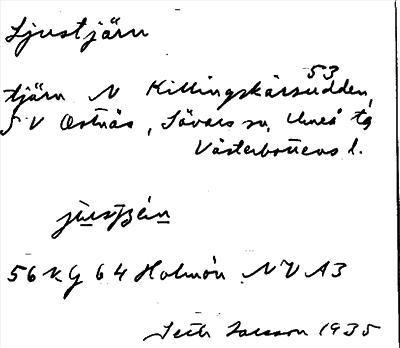 Ljustjärn
53
tjärn N Killingskärsudden,
SV Östnäs, Sävars sn, Umeå tg
Västerbottens l.
56 V G 64 Holmön NV A3
Seth Larsson 1935